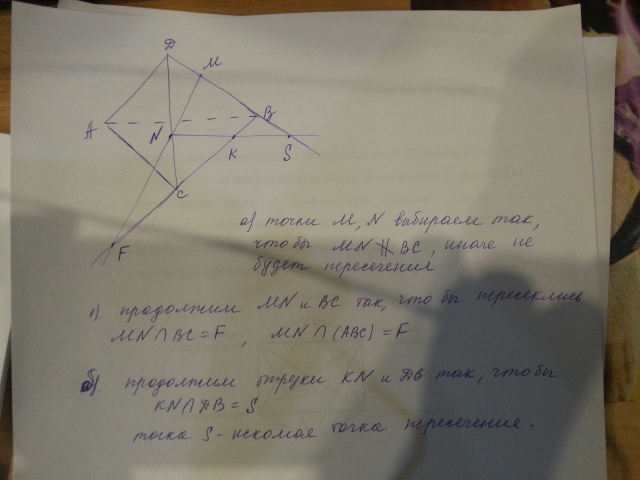 Д
M
A
B
N
K
S
C
F
а) точки M, N выбираем так,
чтобы MN ∦ BC, иначе не
будет пересечения
1) продолжим MN и BC так, что бы пересеклись
MN ∩ BC = F , MN ∩ (ABC) = F
б) продолжим отрезки KN и ДB так, чтобы
KN ∩ ДB = S
точка S - искомая точка пересечения.